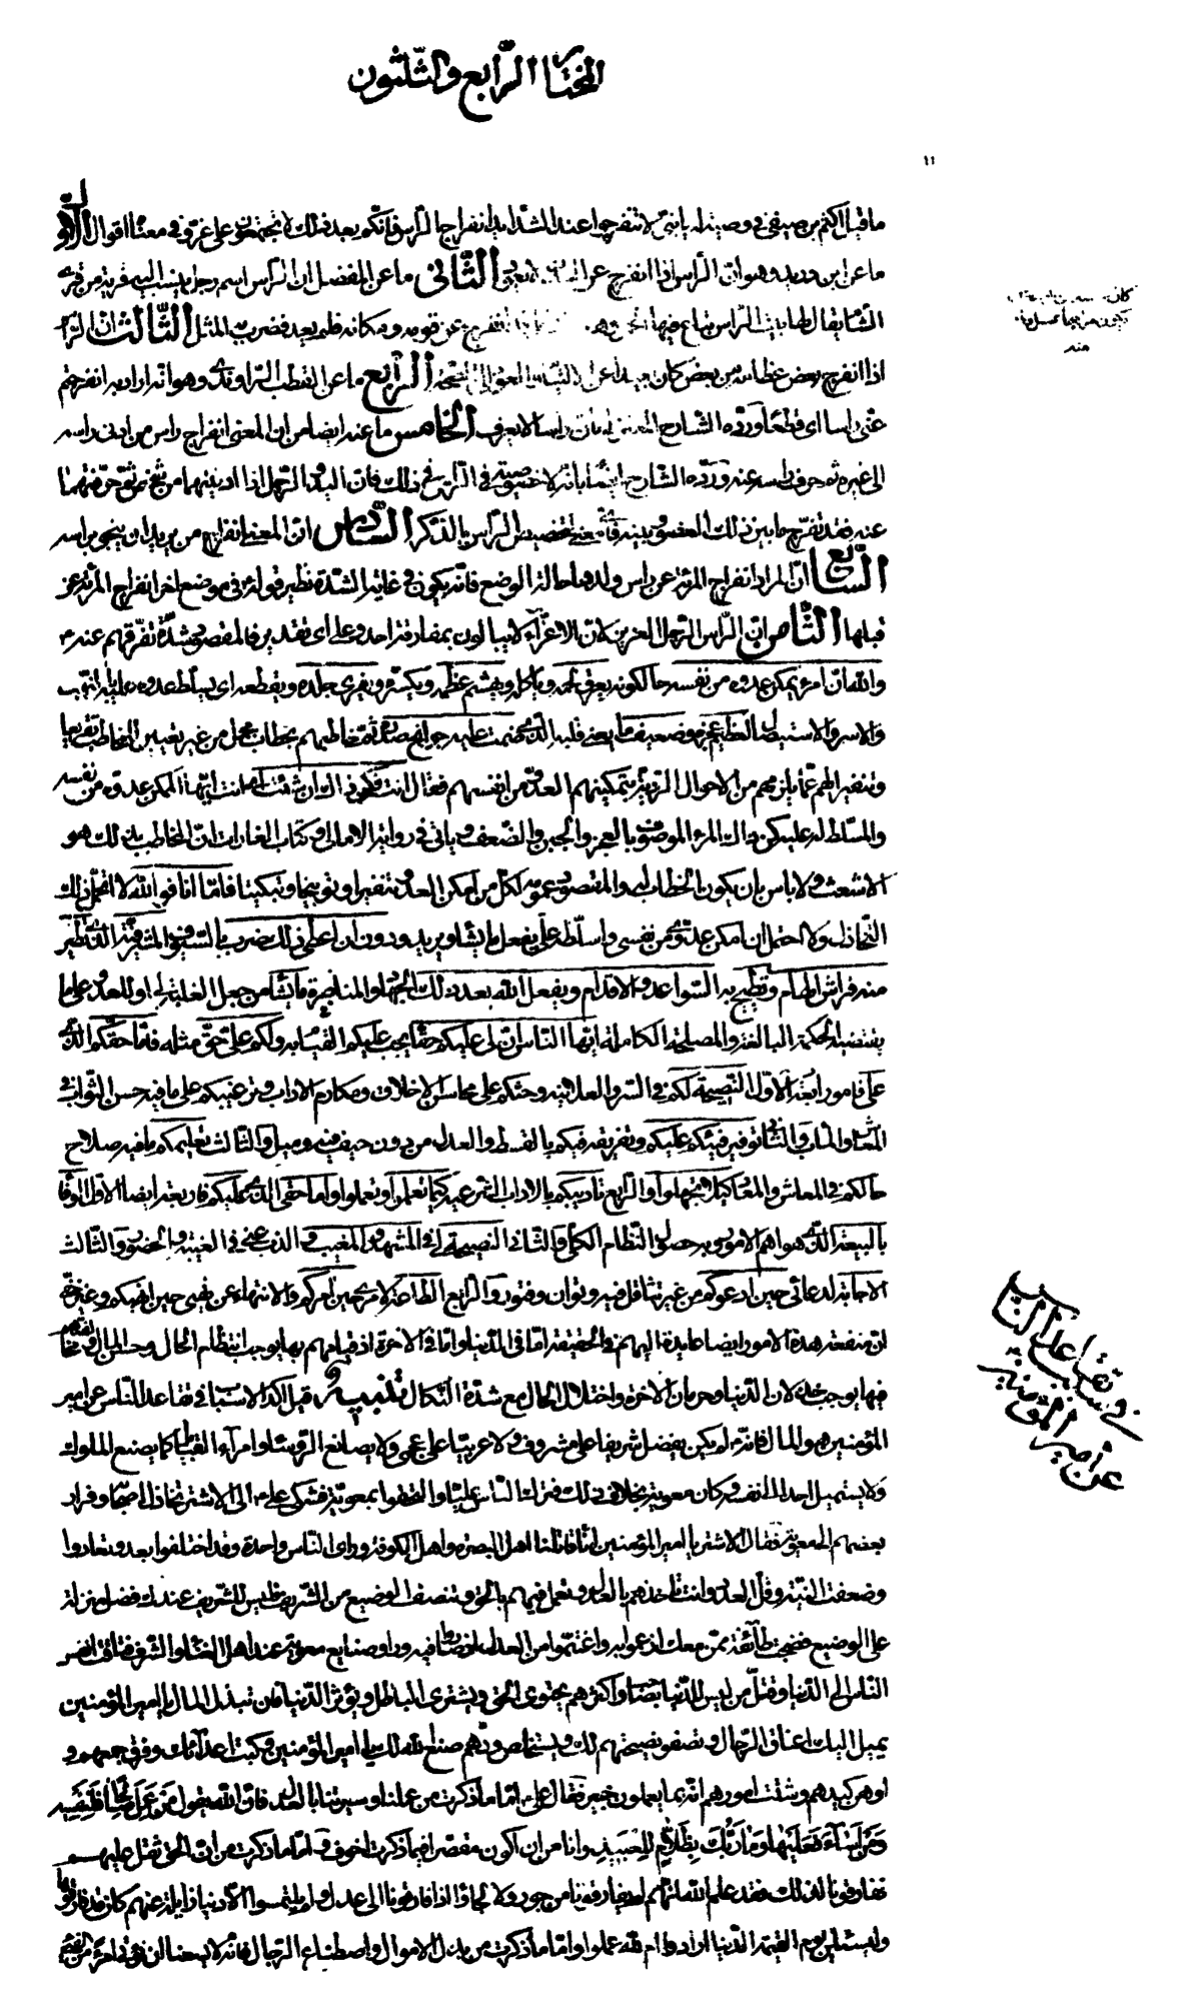 المختار الرابع والثلثون
١١
ما قيل اكثم بن صيفى فى وصيته له يا بنىّ لا تنفرجوا عند الشدايد انفراج الرأس فانكم بعد ذلك لا تجتمعون على عزّ وفى معناه اقوال الاوّل
ما عن ابن دريد وهو انّ الرأس اذا انفرج عن البدن لا يعود الثّانى ما عن المفضل ان الرأس اسم رجل ينسب اليه قرية من قرى
الشام يقال لها بيت الرأس تباع فيها الخمر وهو انفرج عن قومه ومكانه فلم يعد فضرب به المثل الثّالث انّ الرأس
اذا انفرج بعض عظامه من بعض كان بعيدا عن الالتيام والعود الى الصحّة الرّابع ما عن القطب الرّاوندى وهو انه اراد به انفرجتم
عنّى راسا اى قطعا وردّه الشارح المعتزلى بان راسا لا يعرف الخامس ما عنه ايضا من ان المعنى انفراج راس من ادنى راسه
الى غيره ثم حرف راسه عنه وردّه الشارح ايضا بانه لا خصوصيّة فى الرّاس فى ذلك فان اليد والرّجل اذا ادنيتهما من شخص ثمّ حرّفتهما
عنه فقد تفرّج ما بين ذلك العضو وبينه فاىّ معنى لتخصيص الرّأس بالذّكر السّادس انّ المعنى انفراج من يريد ان ينجو براسه
السّابع انّ المراد انفراج المرئة عن راس ولدها حالة الوضع فانّه يكون فى غاية الشدّة نظير قوله فى موضع اخر انفراج المرئة عن
قبلها الثّامن انّ الرّأس الرّجل العزيز لانّ الاعزّاء لا يبالون بمفارقة احد وعلى اىّ تقدير فالمقصود شدّة تفرّقهم عنه
والله انّ امرء يمكّن عدوّه من نفسه حالكونه يعرق لحمه وياكله ويهشم عظمه ويكسره ويفرى جلده ويقطعه اى يسلّط عدوّه عليه بالنهب
والاسر والاستيصال لعظيم عجزه وضعيف ما يعنى قلبه الذى ضمّت عليه جوانح صدره ثمّ خاطبهم بخطاب مجمل من غير تعيين المخاطب تقريعا
وتنفيرا لهم عمّا يلزمهم من الاحوال الرديّة بتمكينهم العدوّ من انفسهم فقال انت فكن ذاك ان شئت اى انت ايّها الممكّن عدوّه من نفسه
والمسلّط له عليه كن ذاك المرء الموصوف بالعجز والجبن والضّعف وياتى فى رواية الامالى وكتاب الغارات انّ المخاطب بذلك هو
الاشعث ولا باس بان يكون الخطاب له والمقصود عمومه لكلّ من امكن العدوّ تنفيرا وتوبيخا وتبكيتا فامّا انا فوالله لا اتحمّل ذلك
التّخاذل ولا احتمل ان امكن عدوّى من نفسى واسلّطه علىّ يفعل ما يشاء ويريد ودون ان اعطى ذلك ضرب بالسّيوف المشرفيّة الّذى تطير
منه فراش الهام وتطيح به السّواعد والاقدام ويفعل الله بعد ذلك الجهاد والمناجزة ما يشاء من جعل الغلبة لى او للعدوّ على ما
يقتضيه الحكمة البالغة والمصلحة الكاملة ايّها النّاس انّ لى عليكم حقّا يجب عليكم القيام به ولكم علىّ حقّ مثله فامّا حقّكم الّذى
علىّ فامور اربعة الاوّل النّصيحة لكم فى السّر والعلانية وحثّكم على محاسن الاخلاق ومكارم الاداب وترغيبكم على ما فيه حسن الثّواب فى
المعاش والمآب والثّانى توفير فيئكم عليكم وتفريقه فيكم بالقسط والعدل من دون حيف فيه وميل والثّالث تعليمكم ما فيه صلاح
حالكم فى المعاش والمعاد كيلا تجهلوا والرّابع تاديبكم بالاداب الشّرعيّة كيما تعلموا وتعملوا وامّا حقّى الّذى عليكم فاربعة ايضا الاوّل الوفاء
بالبيعة الّذى هو اهمّ الامور وبه حصول النّظام الكلّى والثّانى النّصيحة لى فى المشهد والمغيب والذبّ عنّى فى الغيبة والحضور والثّالث
الاجابة لدعائى حين ادعوكم من غير تثاقل فيه وتوان وفتور والرّابع الطّاعة لامرى حين آمركم والانتهاء عن نهيى حين انهيكم وغير خفىّ
انّ منفعة هذه الامور ايضا عايدة اليهم فى الحقيقة امّا فى الدّنيا وامّا فى الاخرة اذ قيامهم بها يوجب انتظام الحال وحسن المآل
فيها يوجب خذلان الدّنيا وحرمان الاخرة واختلال الحال مع شدّة النّكال تنبيه قيل اكد الاسباب فى تقاعد النّاس عن امير
المؤمنين هو المال فانّه لم يكن يفضّل شريفا على مشروف ولا عربيّا على عجمىّ ولا يصانع الرّؤساء وامراء القبايل كما يصنع الملوك
ولا يستميل احدا الى نفسه وكان معوية بخلاف ذلك فترك النّاس عليّا والتحقوا بمعوية فشكى علىّ الى الاشتر تخاذل اصحابه وفرار
بعضهم الى معوية فقال الاشتر يا امير المؤمنين انّا قاتلنا اهل البصرة باهل الكوفة وراى النّاس واحدة وقد اختلفوا بعد وتعادوا
وضعفت النيّة وقلّ العدد وانت تاخذهم بالعدل وتعمل فيهم بالحقّ وتنصف الوضيع من الشّريف فليس للشّريف عندك فضل منزلة
على الوضيع فضجّت طائفة ممّن معك اذ عمّوا به واغتمّوا من العدل اذ صاروا فيه وراوا صنايع معوية عند اهل الغناء والشّرف فتاقت انفس
النّاس الى الدّنيا وقلّ من ليس للدّنيا بصاحب واكثرهم يجتوى الحقّ ويشترى الباطل ويؤثر الدّنيا فان تبذل المال يا امير المؤمنين
يميل اليك اعناق الرّجال وتصفو نصيحتهم لك ويستخلص ودّهم صنع الله لك يا امير المؤمنين وكبت اعدائك وفرّق جمعهم و
اوهن كيدهم وشتّت امورهم انّه بما يعملون خبير فقال علىّ امّا ما ذكرت من عملنا وسيرتنا بالعدل فانّ الله يقول مَنْ عَمِلَ صٰالِحاً فَلِنَفْسِهِ
وَمَنْ اَسٰاءَ فَعَلَيْهٰا وَمٰا رَبُّكَ بِظَلّٰامٍ لِلْعَبِيدِ وانا من ان اكون مقصّرا فيما ذكرت اخوف وامّا ما ذكرت من انّ الحقّ ثقل عليهم
ففارقونا لذلك فقد علم الله انّهم لم يفارقونا من جور ولا لجاؤا اذا فارقونا الى عدل ولم يلتمسوا الّا دنيا زايلة عنهم كان قد فارقوها
وليسئلنّ يوم القيمة الدّنيا ارادوا ام لله عملوا وامّا ما ذكرت من بذل الاموال واصطناع الرّجال فانّه لا يسعنا ان نؤتى امرء من الفىء
فى سبب تقاعد النّاس
عن امير المؤمنين